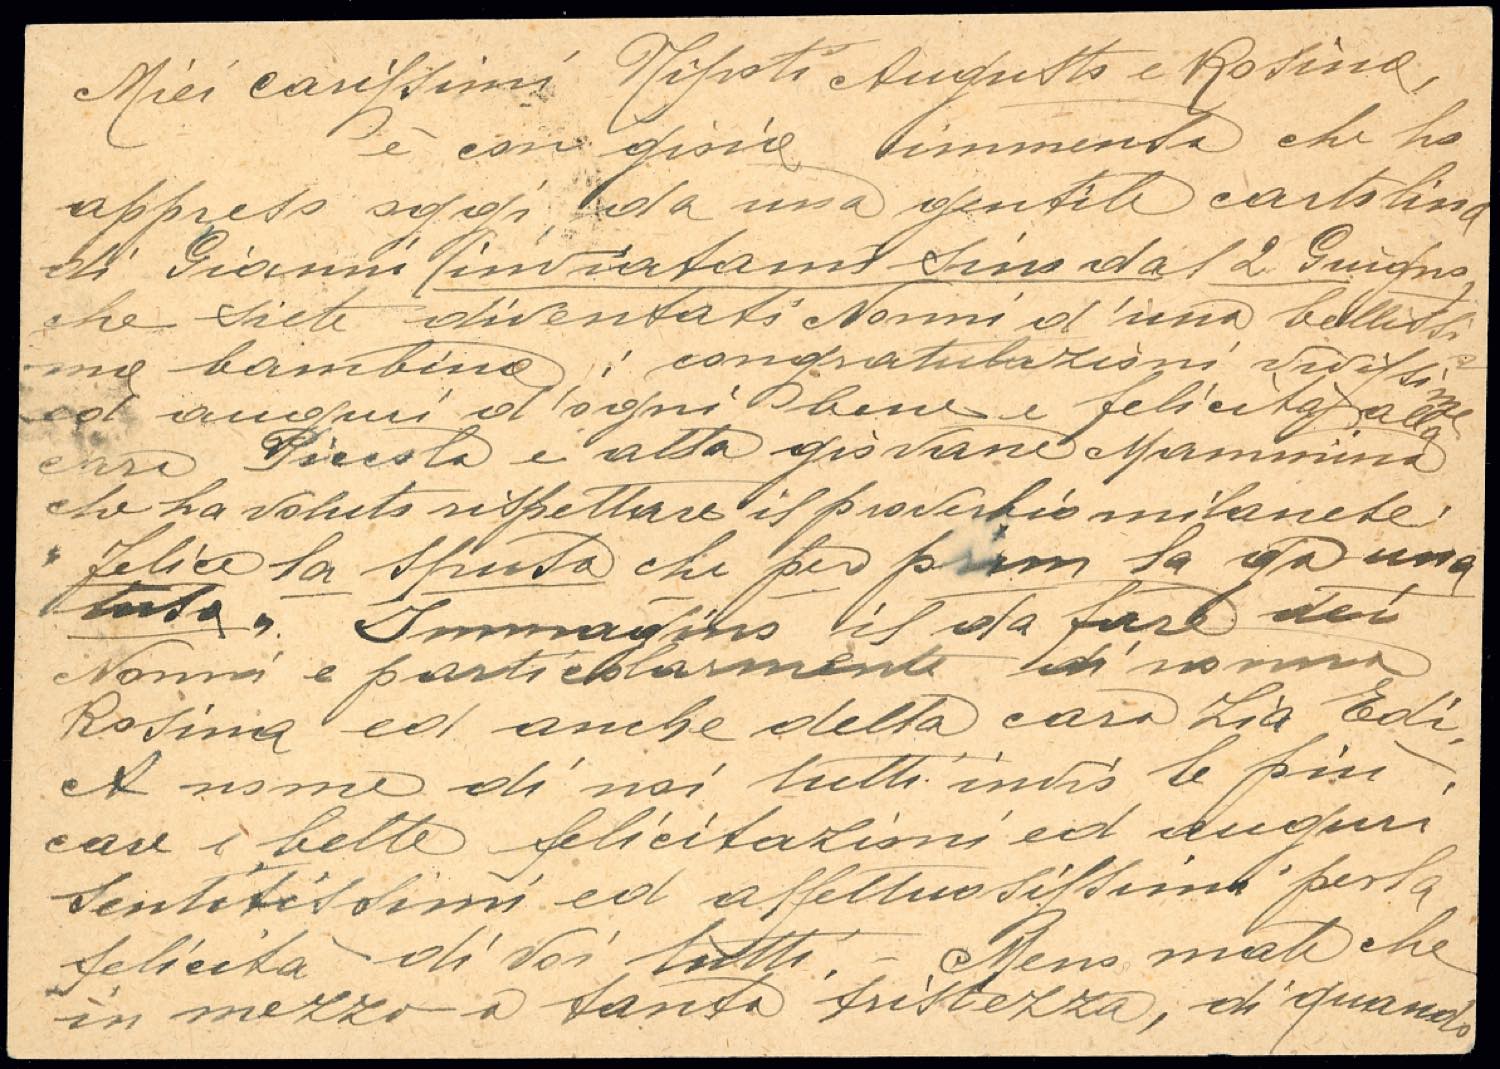 Miei carissimi Nipoti Augusto e Rosina,
è con gioia immensa che ho
appreso oggi, da una gentile cartolina
di Gianni (inviatami sino dal 2 Giugno)
che siete diventati Nonni d'una bellissi
ma bambina; congratulazioni vivissime
ed auguri d'ogni bene e felicità alla
cara Piccola e alla giovane Mammina
che ha voluto rispettare il proverbio milanese:
"felice la spusa che per prim la gà una
tusa". Immagino il da fare dei
Nonni e particolarmente di nonna
Rosina ed anche della cara Zia Edi,
A nome di noi tutti invio le più
care e belle felicitazioni ed auguri
sentitissimi ed affettuosissimi per la
felicità di voi tutti. - Meno male che
in mezzo a tanta tristezza, di quando